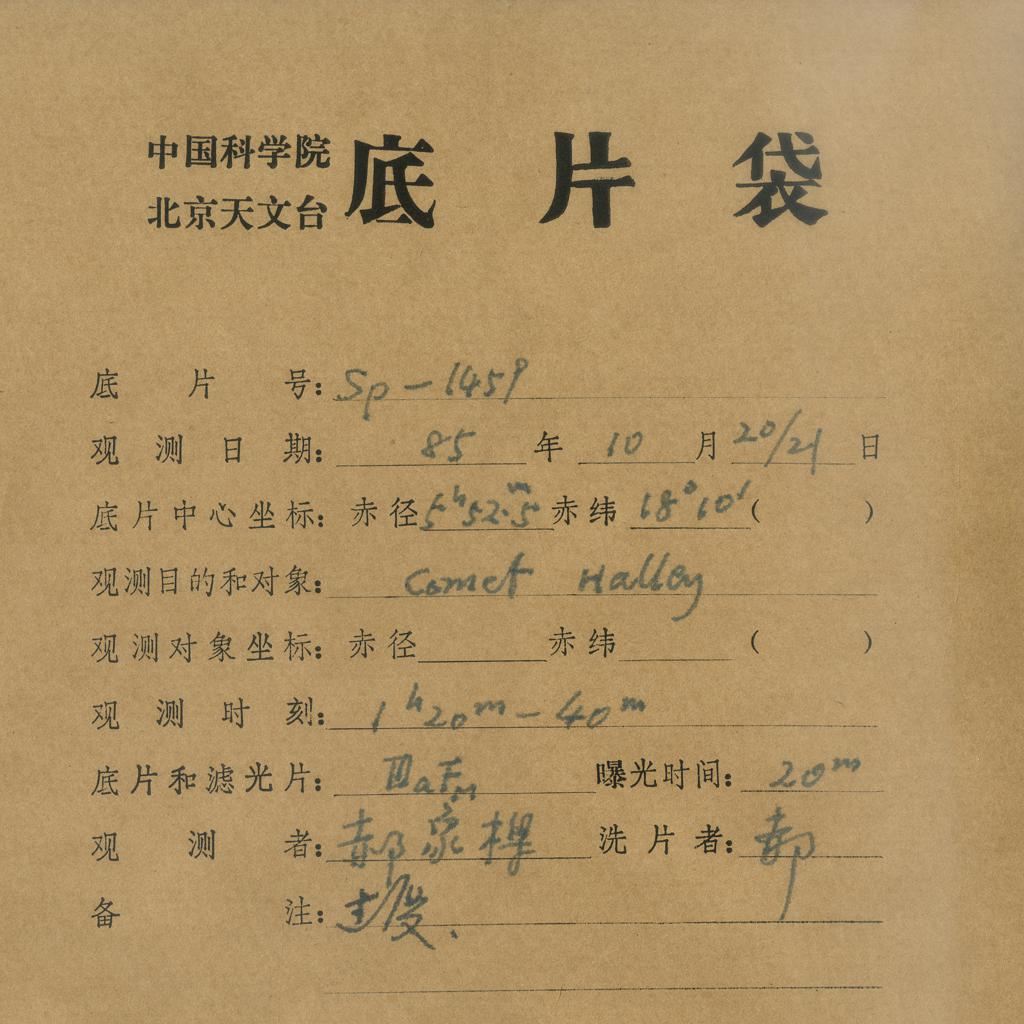 中国科学院
北京天文台
底片袋
底片号: Sp-1459
观测日期: 85年10月20/21日
底片中心坐标: 赤径5ʰ52.ᵐ5赤纬18°10′( )
观测目的和对象: Comet Halley
观测对象坐标: 赤径 赤纬 ( )
观测时刻: 1ʰ20ᵐ-40ᵐ
底片和滤光片: IIIaF 曝光时间: 20ᵐ
观测者: 郝 家 洗片者: 郝
备注: